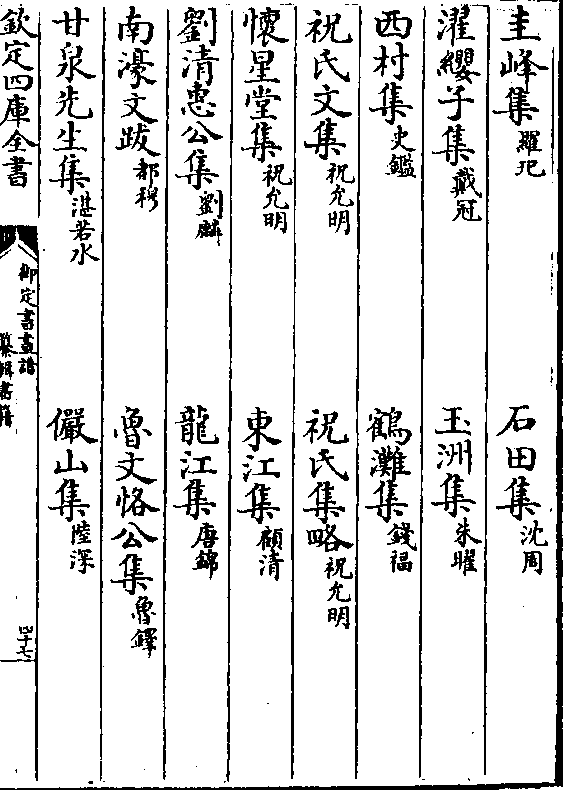 圭峰集羅玘　石田集沈周
濯纓子集戴冠　玉洲集朱曜
西村集史鑑　鶴灘集錢福
祝氏文集祝允明　祝氏集略祝允明
懷星堂集祝允明　東江集顧清
劉清惠公集劉麟　龍江集唐錦
南濠文跋都穆　魯文恪公集魯鐸
甘泉先生集湛若水　儼山集陸深
欽定四庫全書　御定書畫譜　纂輯書籍　四十七